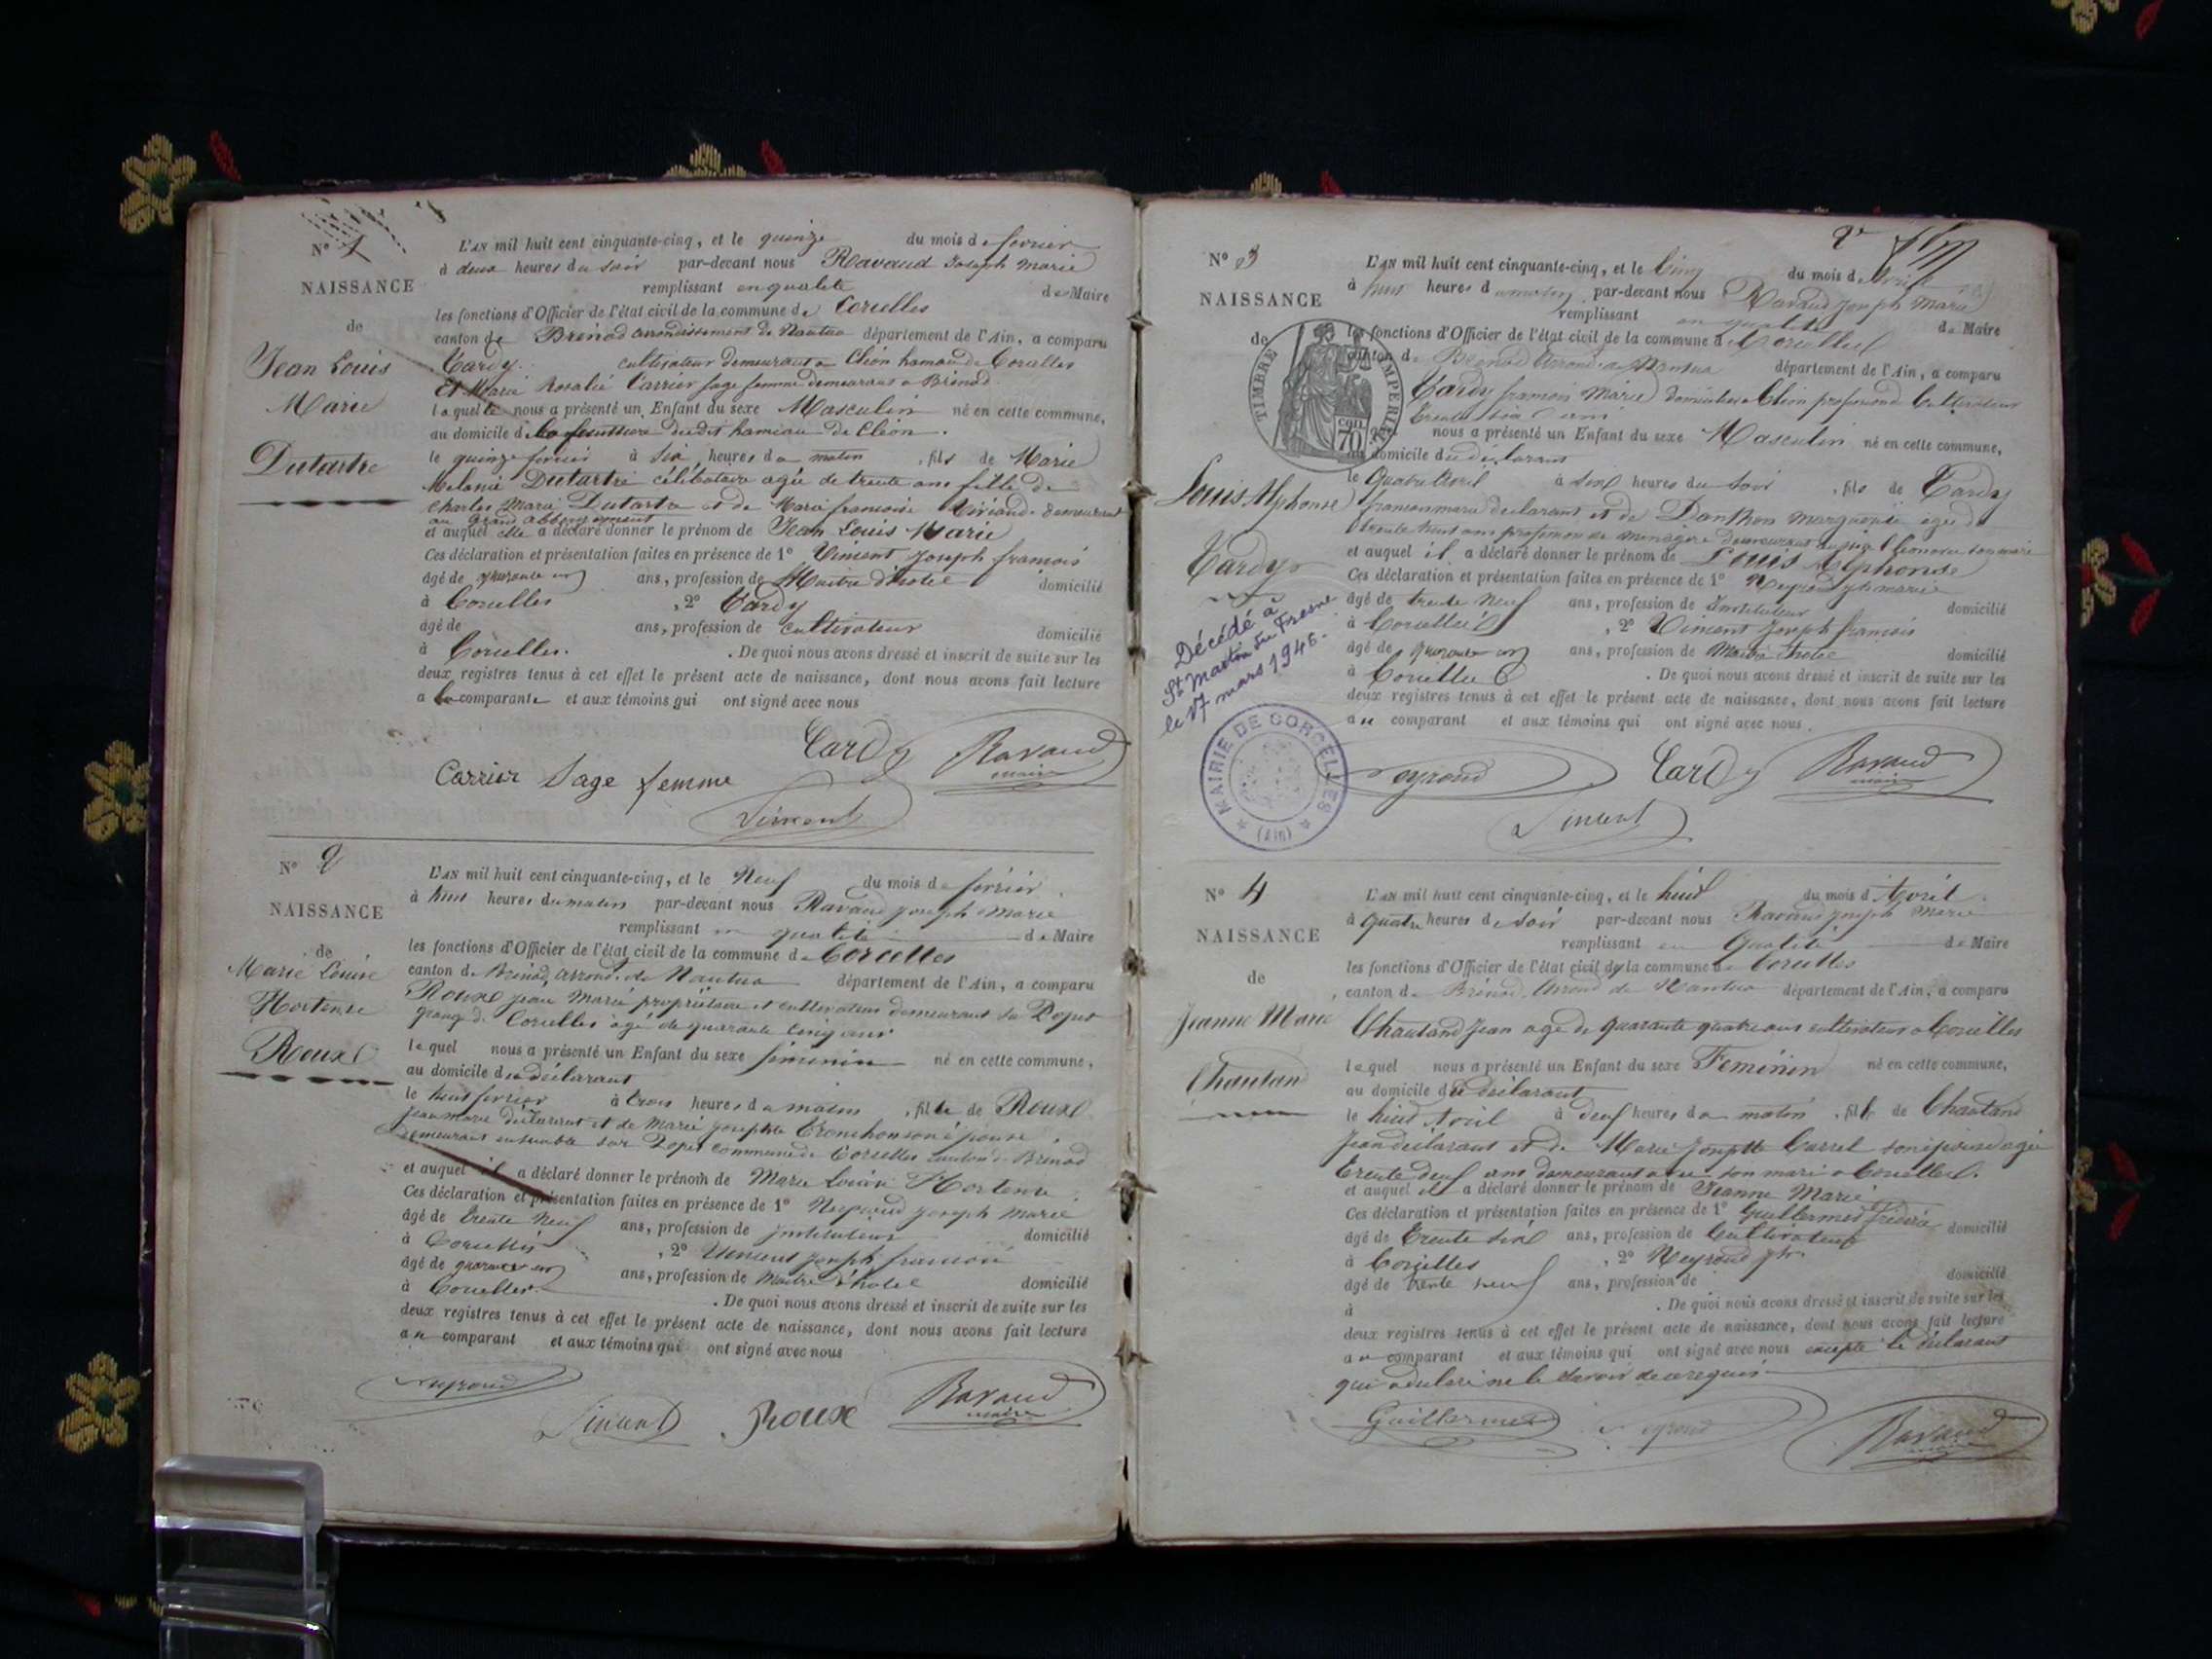 N° 1
NAISSANCE
de
Jean Louis
Marie
Dutartre
L'AN mil huit cent cinquante-cinq, et le quinze du mois de fevrier
à deux heures du soir par-devant nous Ravaud Joseph Marie
remplissant en qualité de Maire
les fonctions d'Officier de l'état civil de la commune de Corcelles
canton de Brénod arrondissement de Nantua département de l'Ain, a comparu
Tardy cultivateur demeurant a Cléon hameau de Corcelles
Et Marie Rosalie Carrier sage femme demeurant a Brénod
laquelle nous a présenté un Enfant du sexe Masculin né en cette commune,
au domicile de dudit hameau de Cléon.
le quinze fevrier à six heures du matin, fils de Marie
Melanie Dutartre célibataire agée de trente ans fille de
Charles Marie Dutartre et de Marie francoise demeurant
au grand abbergement
et auquel elle a déclaré donner le prénom de Jean Louis Marie
Ces déclaration et présentation faites en présence de 1° Vincent Joseph francois
âgé de quarante un ans, profession de Maitre d'hotel domicilié
à Corcelles, 2° Tardy
âgé de ans, profession de cultivateur domicilié
à Corcelles. De quoi nous avons dressé et inscrit de suite sur les
deux registres tenus à cet effet le présent acte de naissance, dont nous avons fait lecture
a la comparante et aux témoins qui ont signé avec nous
Tardy Ravaud
maire
Carrier Sage femme
Vincent
N° 2
NAISSANCE
de
Marie Louise
Hortense
Roux
L'AN mil huit cent cinquante-cinq, et le Neuf du mois de fevrier
à huit heures du matin par-devant nous Ravaud Joseph Marie
remplissant en qualité de Maire
les fonctions d'Officier de l'état civil de la commune de Corcelles
canton de Brénod, arrond. de Nantua département de l'Ain, a comparu
Roux jean Marie propriétaire et cultivateur demeurant
grange de Corcelles agé de quarante cinq ans
lequel nous a présenté un Enfant du sexe féminin né en cette commune,
au domicile du déclarant
le huit fevrier à trois heures du matin, fille de Roux
jean marie déclarant et de Marie josephte Tronchon son épouse
demeurant ensemble sur commune de Corcelles canton de Brénod
et auquel il a déclaré donner le prénom de Marie Louise Hortense
Ces déclaration et présentation faites en présence de 1° Neyroud Joseph Marie
âgé de trente Neuf ans, profession de jnstituteur domicilié
à Corcelles, 2° Vincent joseph francois
âgé de quarante un ans, profession de Maitre d'hotel domicilié
à Corcelles. De quoi nous avons dressé et inscrit de suite sur les
deux registres tenus à cet effet le présent acte de naissance, dont nous avons fait lecture
au comparant et aux témoins qui ont signé avec nous
Neyroud
Vincent Roux Ravaud
maire
N° 3
NAISSANCE
de
Louis Alphonse
Tardy
Décédé à
St Martin du Fresne
le 17 mars 1946.
MAIRIE DE CORCELLES (AIN)
TIMBRE IMPERIAL
70
L'AN mil huit cent cinquante-cinq, et le Cinq du mois d'Avril
à huit heures du matin par-devant nous Ravaud Joseph Marie
remplissant en qualité de Maire
les fonctions d'Officier de l'état civil de la commune de Corcelles
canton de Brénod Arrond. de Nantua département de l'Ain, a comparu
Tardy francois Marie domicilié a Cléon profession de Cultivateur
Trente six ans
nous a présenté un Enfant du sexe Masculin né en cette commune,
au domicile du déclarant
le Quatre Avril à six heures du soir, fils de Tardy
francois marie declarant et de Danthon marguerite agée de
trente huit ans profession de menagère demeurant
et auquel il a déclaré donner le prénom de Louis Alphonse
Ces déclaration et présentation faites en présence de 1° Neyroud jh marie
âgé de trente Neuf ans, profession de Instituteur domicilié
à Corcelles, 2° Vincent Joseph francois
âgé de quarante un ans, profession de Maitre d'hotel domicilié
à Corcelles. De quoi nous avons dressé et inscrit de suite sur les
deux registres tenus à cet effet le présent acte de naissance, dont nous avons fait lecture
au comparant et aux témoins qui ont signé avec nous.
Neyroud Tardy Ravaud
maire
Vincent
N° 4
NAISSANCE
de
Jeanne Marie
Chautand
L'AN mil huit cent cinquante-cinq, et le huit du mois d'Avril
à quatre heures de soir par-devant nous Ravaud Joseph Marie
remplissant en Qualité de Maire
les fonctions d'Officier de l'état civil de la commune de Corcelles
canton de Brénod, Arrond de Nantua département de l'Ain, a comparu
Chautand Jean agé de quarante quatre ans cultivateur a Corcelles
lequel nous a présenté un Enfant du sexe Feminin né en cette commune,
au domicile du déclarant
le huit Avril à deux heures du matin, fille de Chautand
Jean déclarant et de Marie Josephte Carrel son épouse agée
Trente deux ans demeurant avec son mari a Corcelles.
et auquel il a déclaré donner le prénom de Jeanne Marie
Ces déclaration et présentation faites en présence de 1° Guillermet frédéric
âgé de Trente six ans, profession de Cultivateur domicilié
à Corcelles, 2° Neyroud jh
âgé de trente neuf ans, profession de domicilié
à. De quoi nous avons dressé et inscrit de suite sur les
deux registres tenus à cet effet le présent acte de naissance, dont nous avons fait lecture
au comparant et aux témoins qui ont signé avec nous excepté le déclarant
qui a declaré ne le savoir de ce requis
Guillermet Neyroud Ravaud